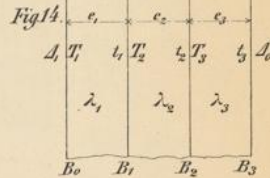 Fig 14.
e₁ e₂ e₃
Δ₁ T₁ t₁ T₂ t₂ T₃ t₃ Δ₀
λ₁ λ₂ λ₃
B₀ B₁ B₂ B₃